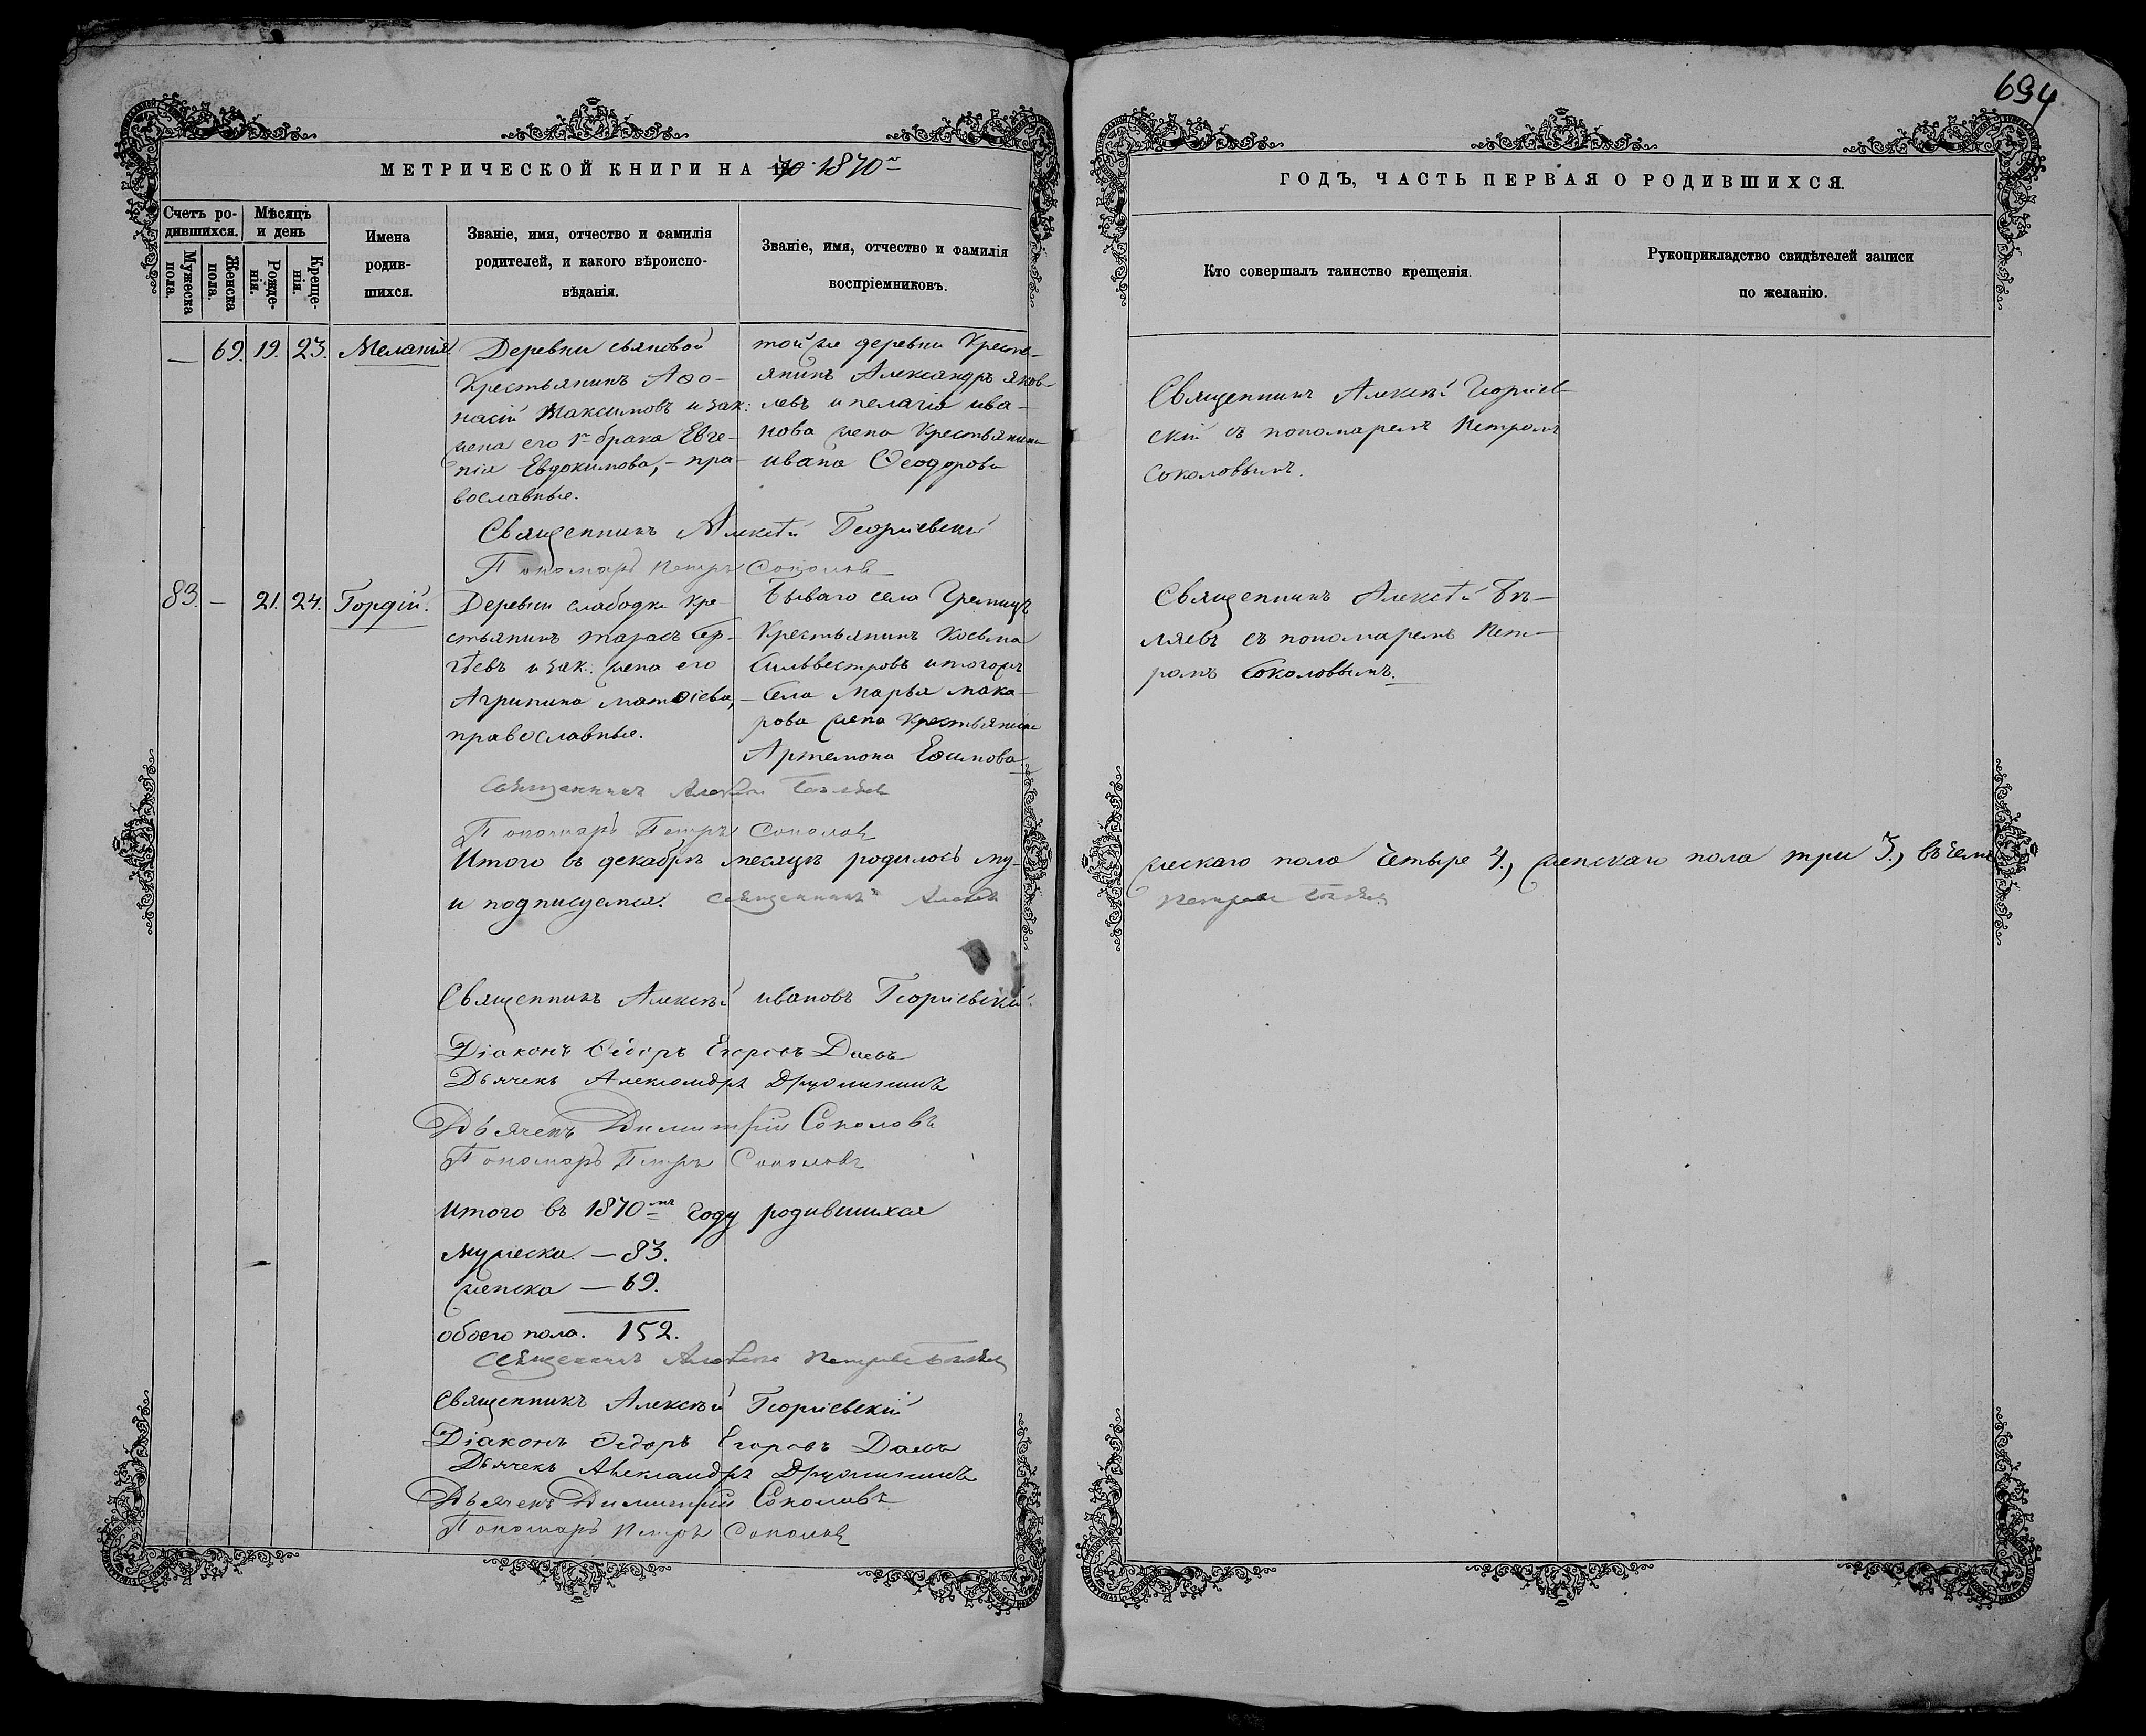 694
МЕТРИЧЕСКОЙ КНИГИ НА 1870
ГОДЪ, ЧАСТЬ ПЕРВАЯ О РОДИВШИХСЯ.
Счетъ ро-
дившихся.
Мужеска
пола.
Женска
пола.
Мѣсяцъ
и день
Рожде-
нія.
Креще-
нія.
Имена
родив-
шихся.
Званіе, имя, отчество и фамилія
родителей, и какого вѣроиспо-
вѣданія.
Званіе, имя, отчество и фамилія
воспріемниковъ.
Кто совершалъ таинство крещенія.
Рукоприкладство свидѣтелей записи
по желанію.
— 69. 19. 23. Меланія.
Деревни
Крестьянинъ Аѳо-
насій Максимовъ и зак:
жена его 1го брака Евге-
нія Евдокимова, – пра-
вославные.
той же деревни Кресть-
янинъ Александръ Яков-
левъ и пелагія ива-
нова жена Крестьянина
ивана Ѳеодорова
Священникъ Алексѣй Георгіев-
скій съ пономаремъ Петромъ
Соколовымъ.
Священникъ Алексѣй Георгіевскій
Пономарь Петръ Соколовъ
83. — 21. 24. Гордій.
Деревни слабодки Кре-
стьянинъ тарасъ Сер-
гѣевъ и зак: жена его
Агрипина матѳіева,
православные.
Крестьянинъ Косьма
Сильвестровъ и тогожъ
Села Марья мака-
рова жена Крестьянина
Артемона Еѳимова
Священникъ Алексѣй Бѣ-
ляевъ съ пономаремъ Пет-
ромъ Соколовымъ.
Священникъ Алексѣй Бѣляевъ
Пономарь Петръ Соколовъ
Итого въ декабрѣ месяцѣ родилось му-
жескаго пола четыре 4., женскаго пола три 3., въ чемъ
и подписуемся. Священникъ Алексѣй
Петровъ Бѣляевъ
Священникъ Алексѣй ивановъ Георгіевскій.
Діаконъ Ѳедоръ Егоровъ Даевъ
Дьячекъ Александръ
Дьячекъ Димитрій Соколовъ
Пономарь Петръ Соколовъ
Итого въ 1870мъ году родившихся
Мужеска. — 83.
женска — 69.
обоего пола. 152.
Священникъ Алексѣй Петровъ Бѣляевъ
Священникъ Алексѣй Георгіевскій
Діаконъ Ѳедоръ Егоровъ Даевъ
Дьячекъ Александръ
Дьячекъ Димитрій Соколовъ
Пономарь Петръ Соколовъ